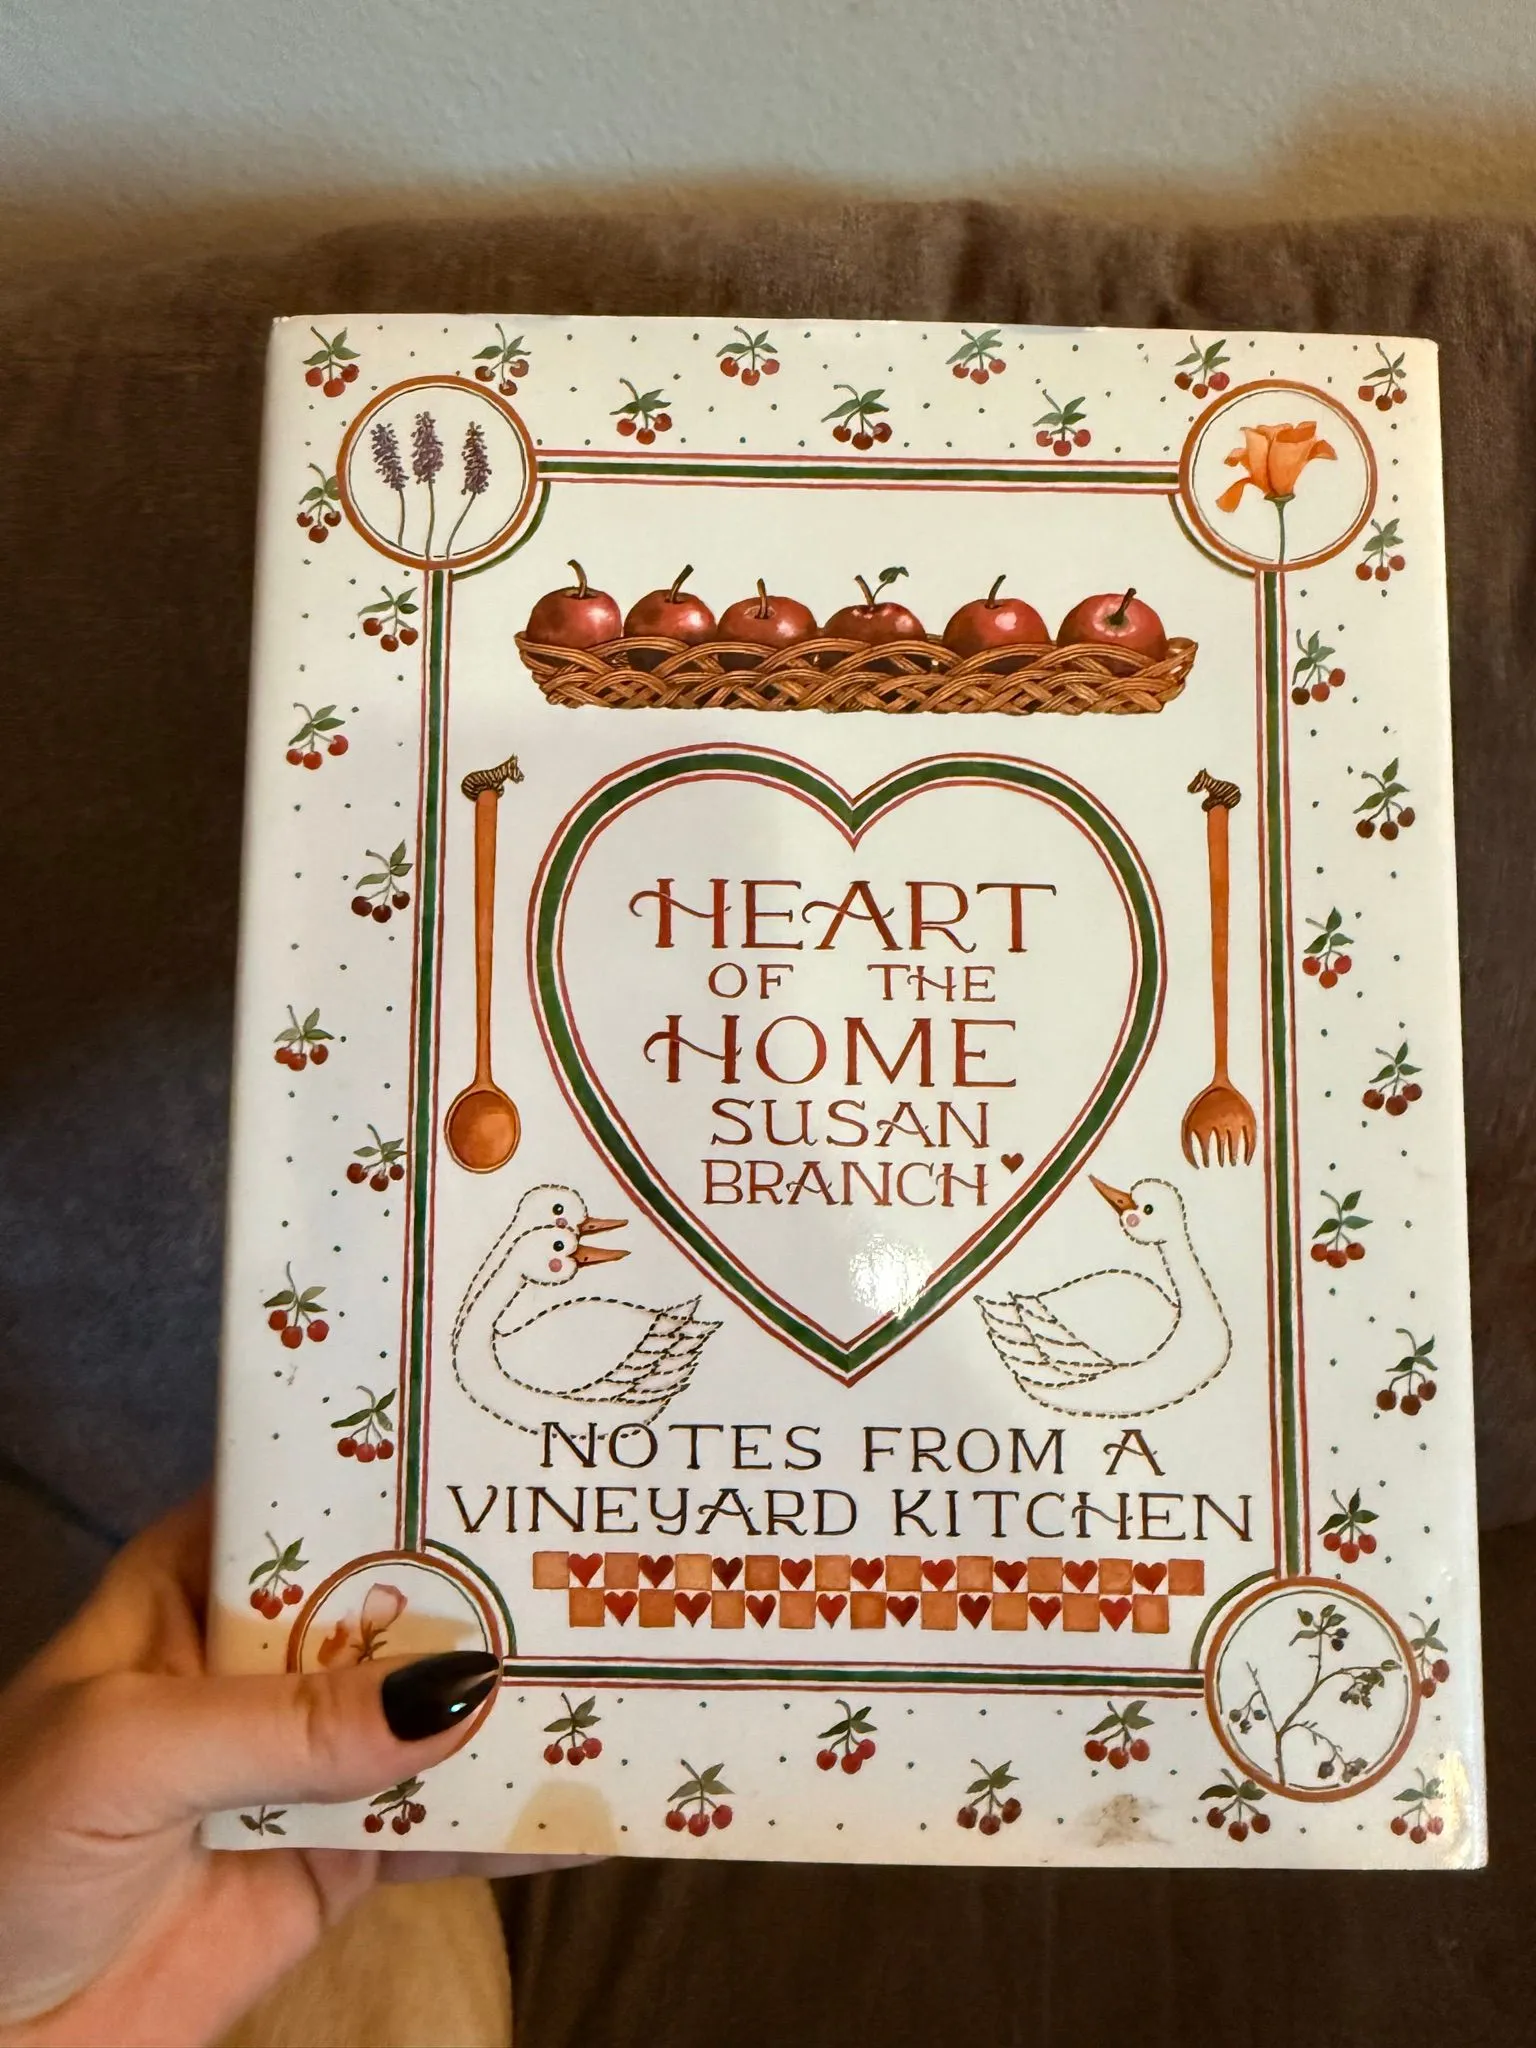 HEART
OF THE
HOME
SUSAN
BRANCH
NOTES FROM A
VINEYARD KITCHEN